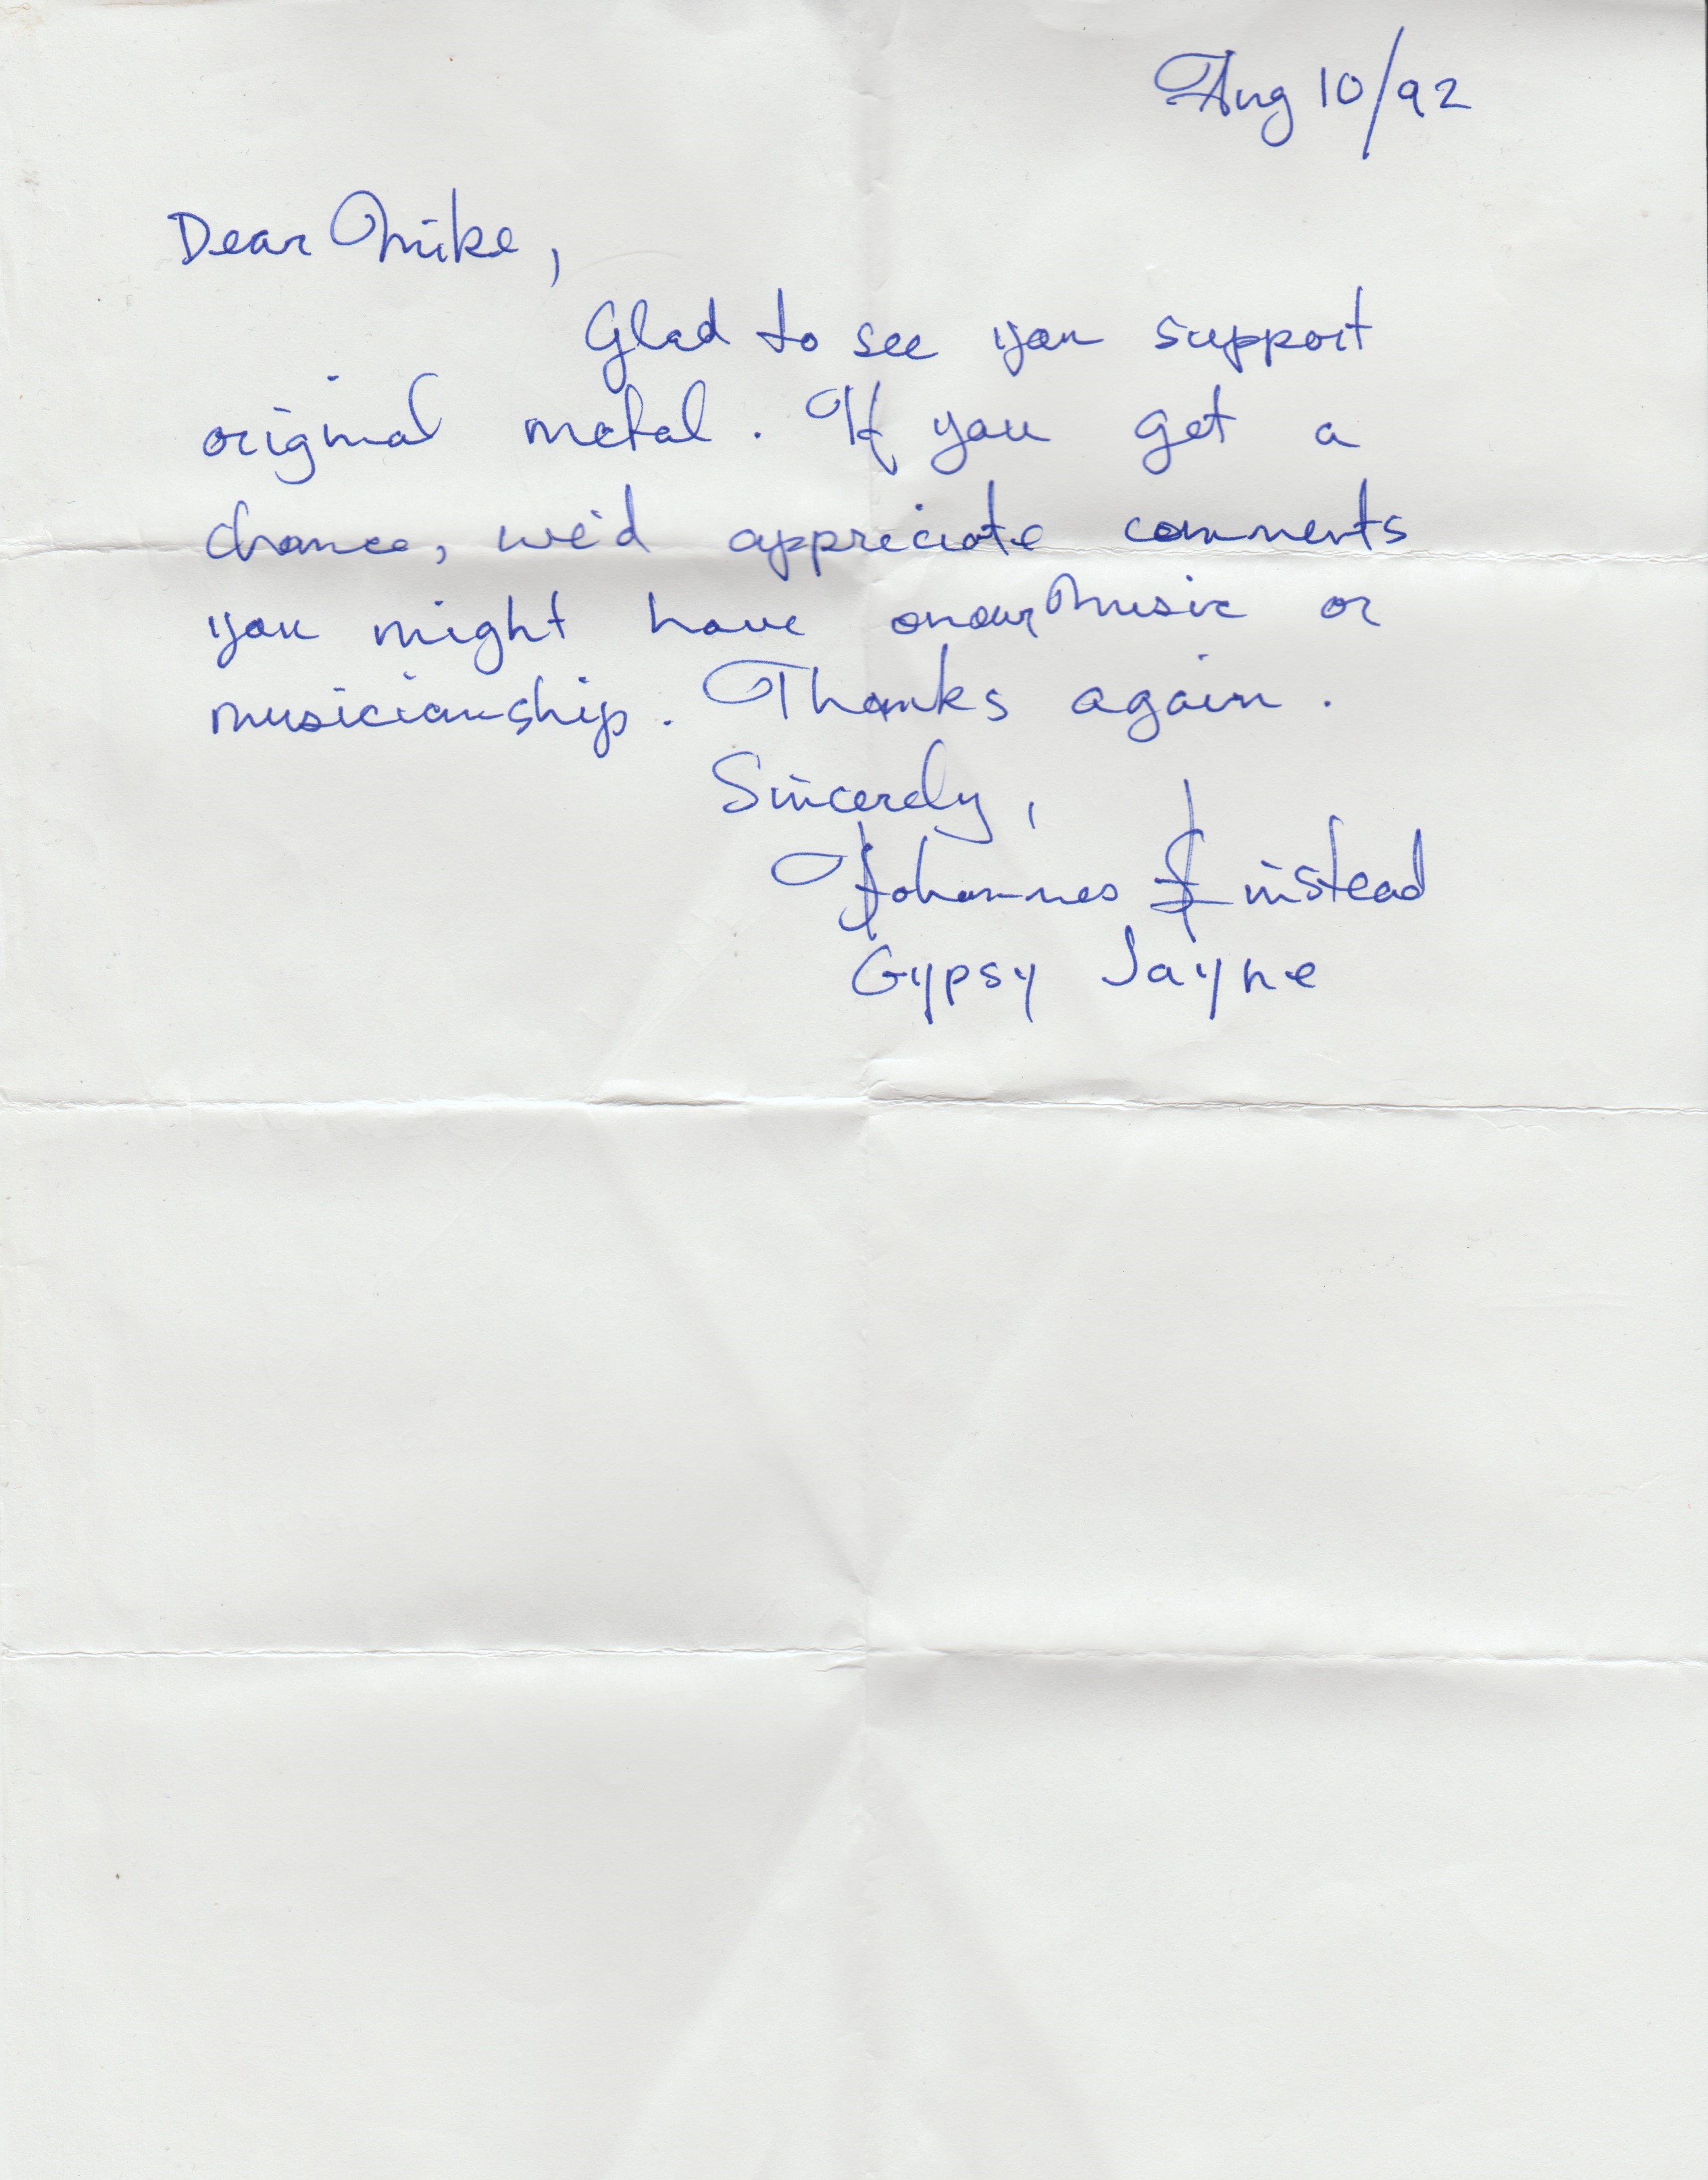 Aug 10/92
Dear Mike,
Glad to see you support
original metal. If you get a
chance, we'd appreciate comments
you might have on our music or
musicianship. Thanks again.
Sincerely,
Johannes Linstead
Gypsy Jayne